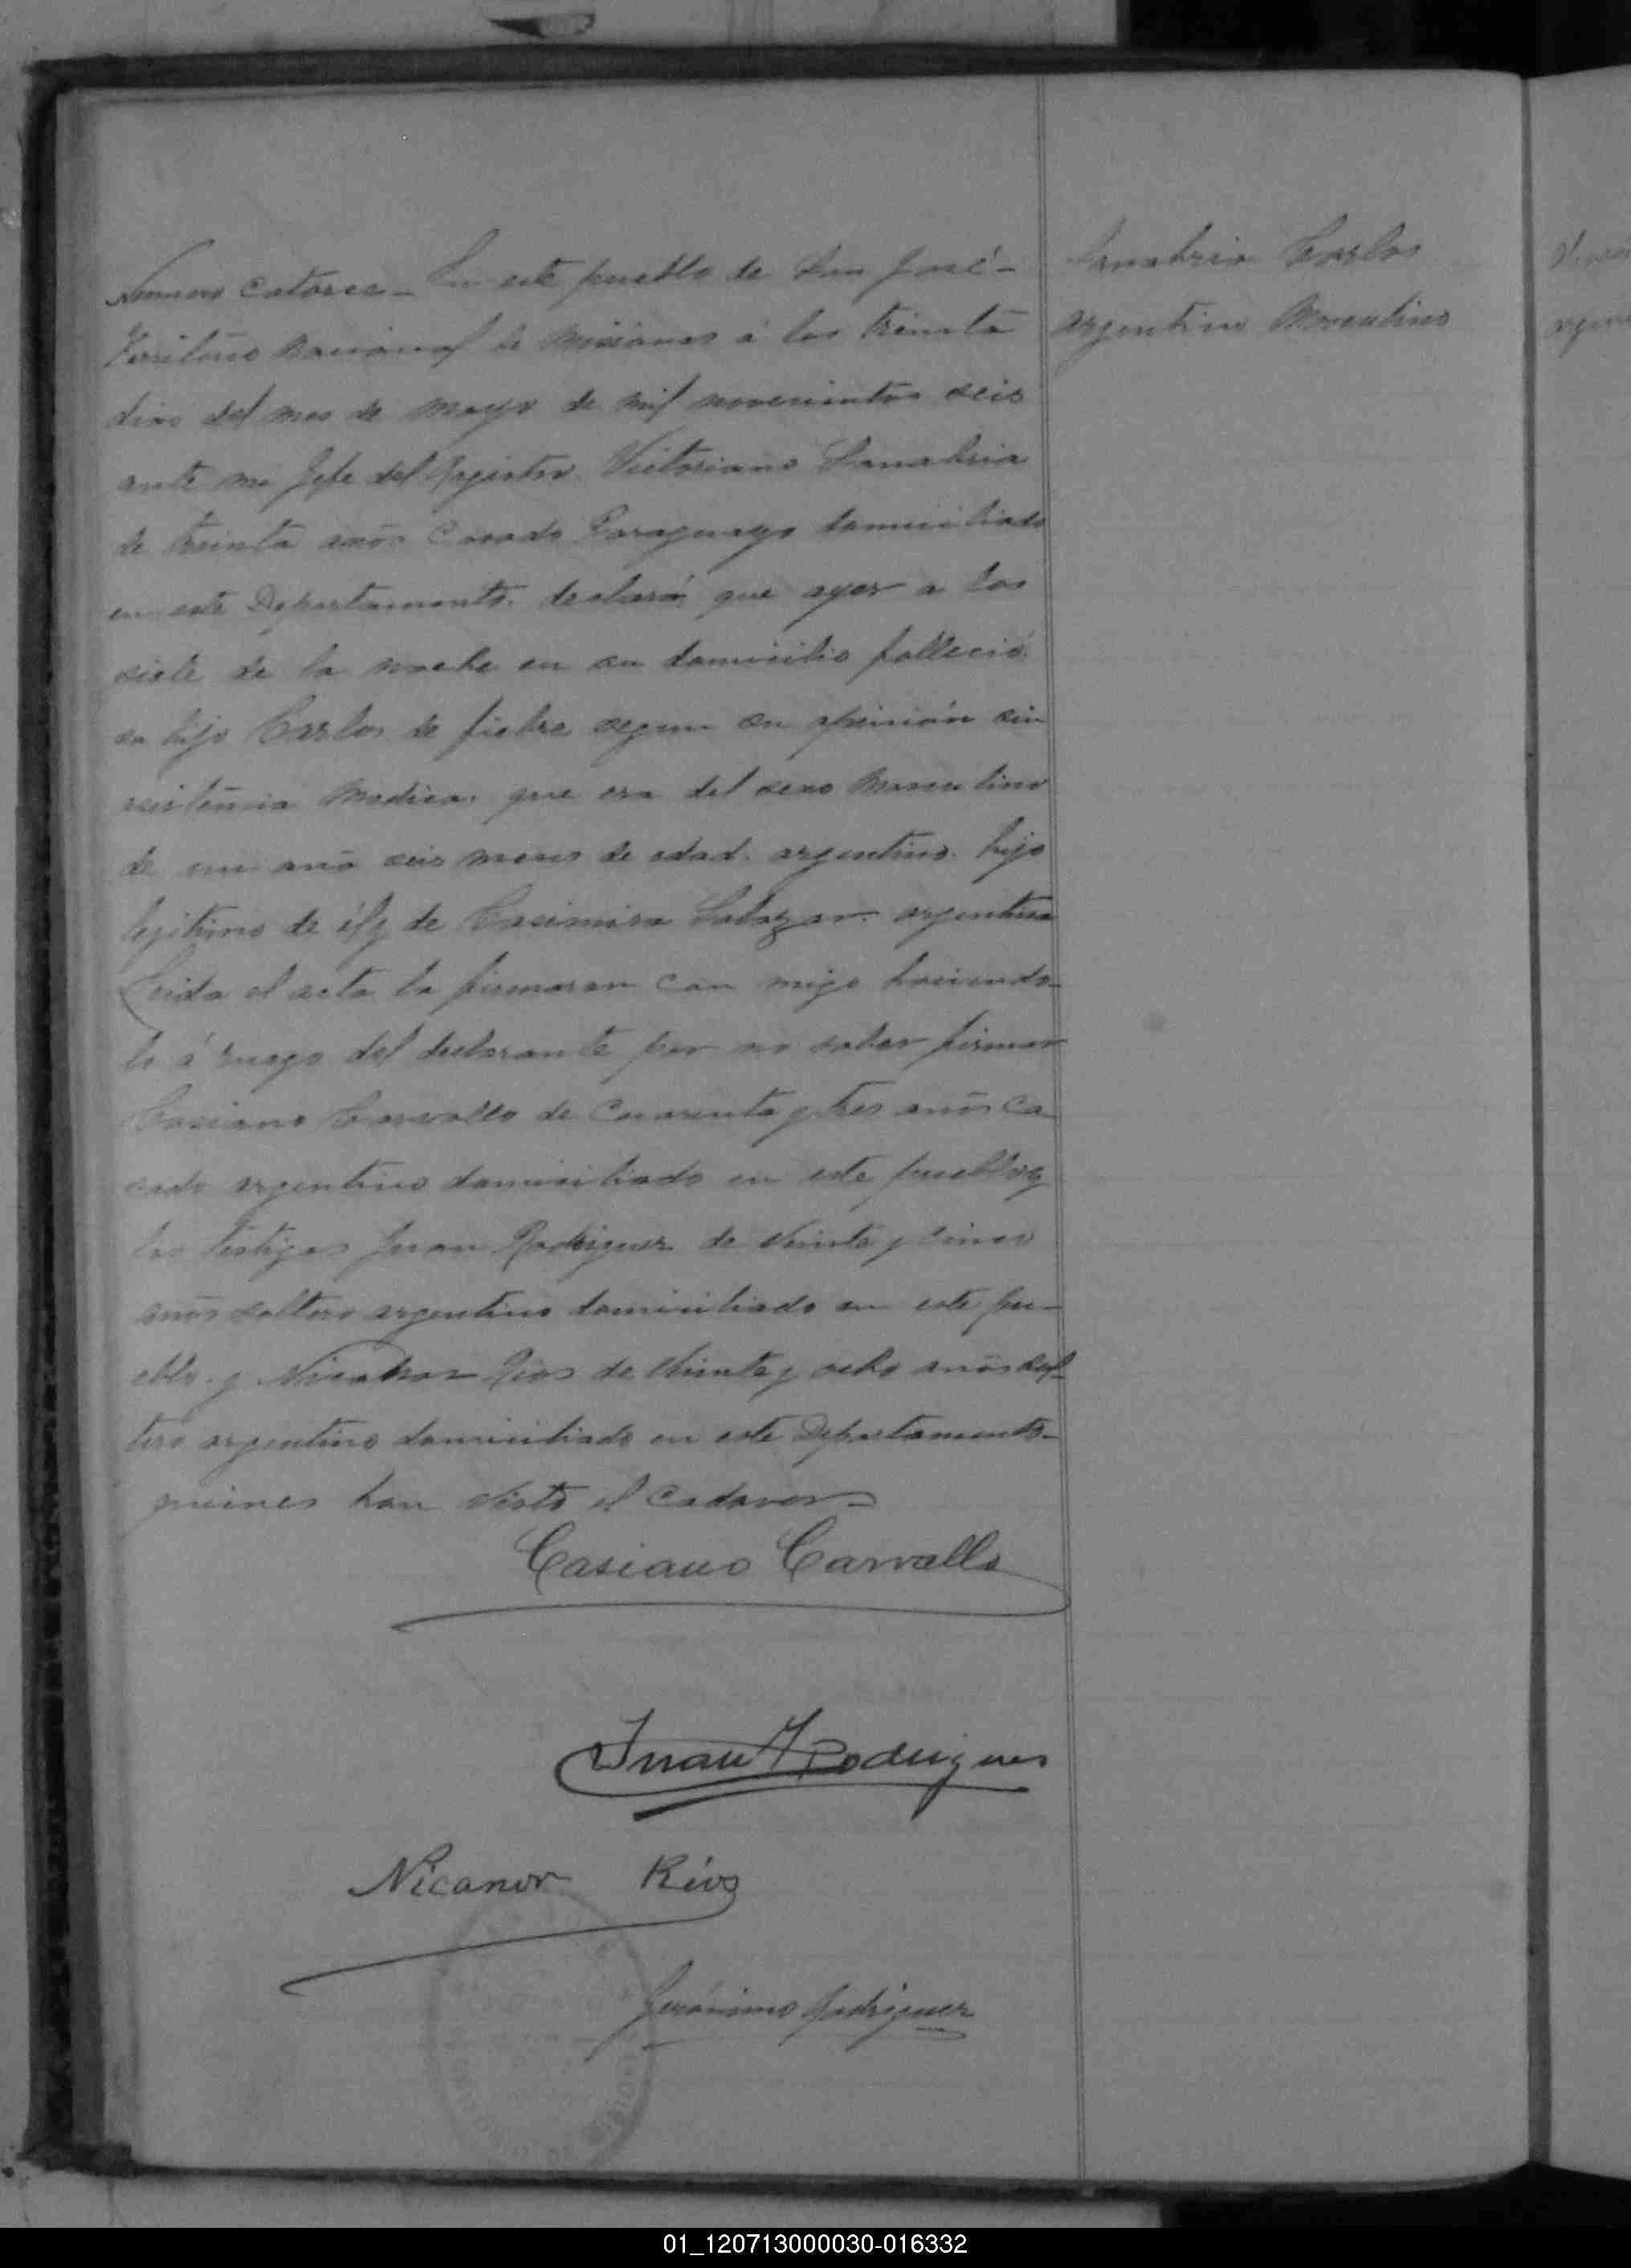 Numero Catorce_ En este pueblo de San José_
Territorio Nacional de Misiones á los treinta
dias del mes de Mayo de mil novecientos seis
ante mi Jefe del Registro Victoriano Sanabria
de treinta años Casado Paraguayo domiciliado
en este Departamento. declaró que ayer a las
siete de la noche en su domicilio falleció
su hijo Carlos de fiebre segun su opinión sin
asistencia Medica. que era del sexo Masculino
de un año seis meses de edad. argentino. hijo
legitimo de él y de Casimira Salazar. argentina
Leida el acta la firmaron con migo haciendo_
lo á ruego del declarante por no saber firmar
Casiano Carvallo de Cuarenta y tres años Ca_
sado argentino domiciliado en este pueblo y
los testigos Juan Rodriguez de Veinte y cinco
años soltero argentino domiciliado en este pu_
eblo. y Nicanor Rios de Veinte y ocho años sol_
tero argentino domiciliado en este Departamento_
quienes han visto el Cadaver_
Casiano Carvallo
Juan Rodrigues
Nicanor Ríos
Jerónimo Rodriguez
Sanabria Carlos
argentino Masculino
01_120713000030-016332